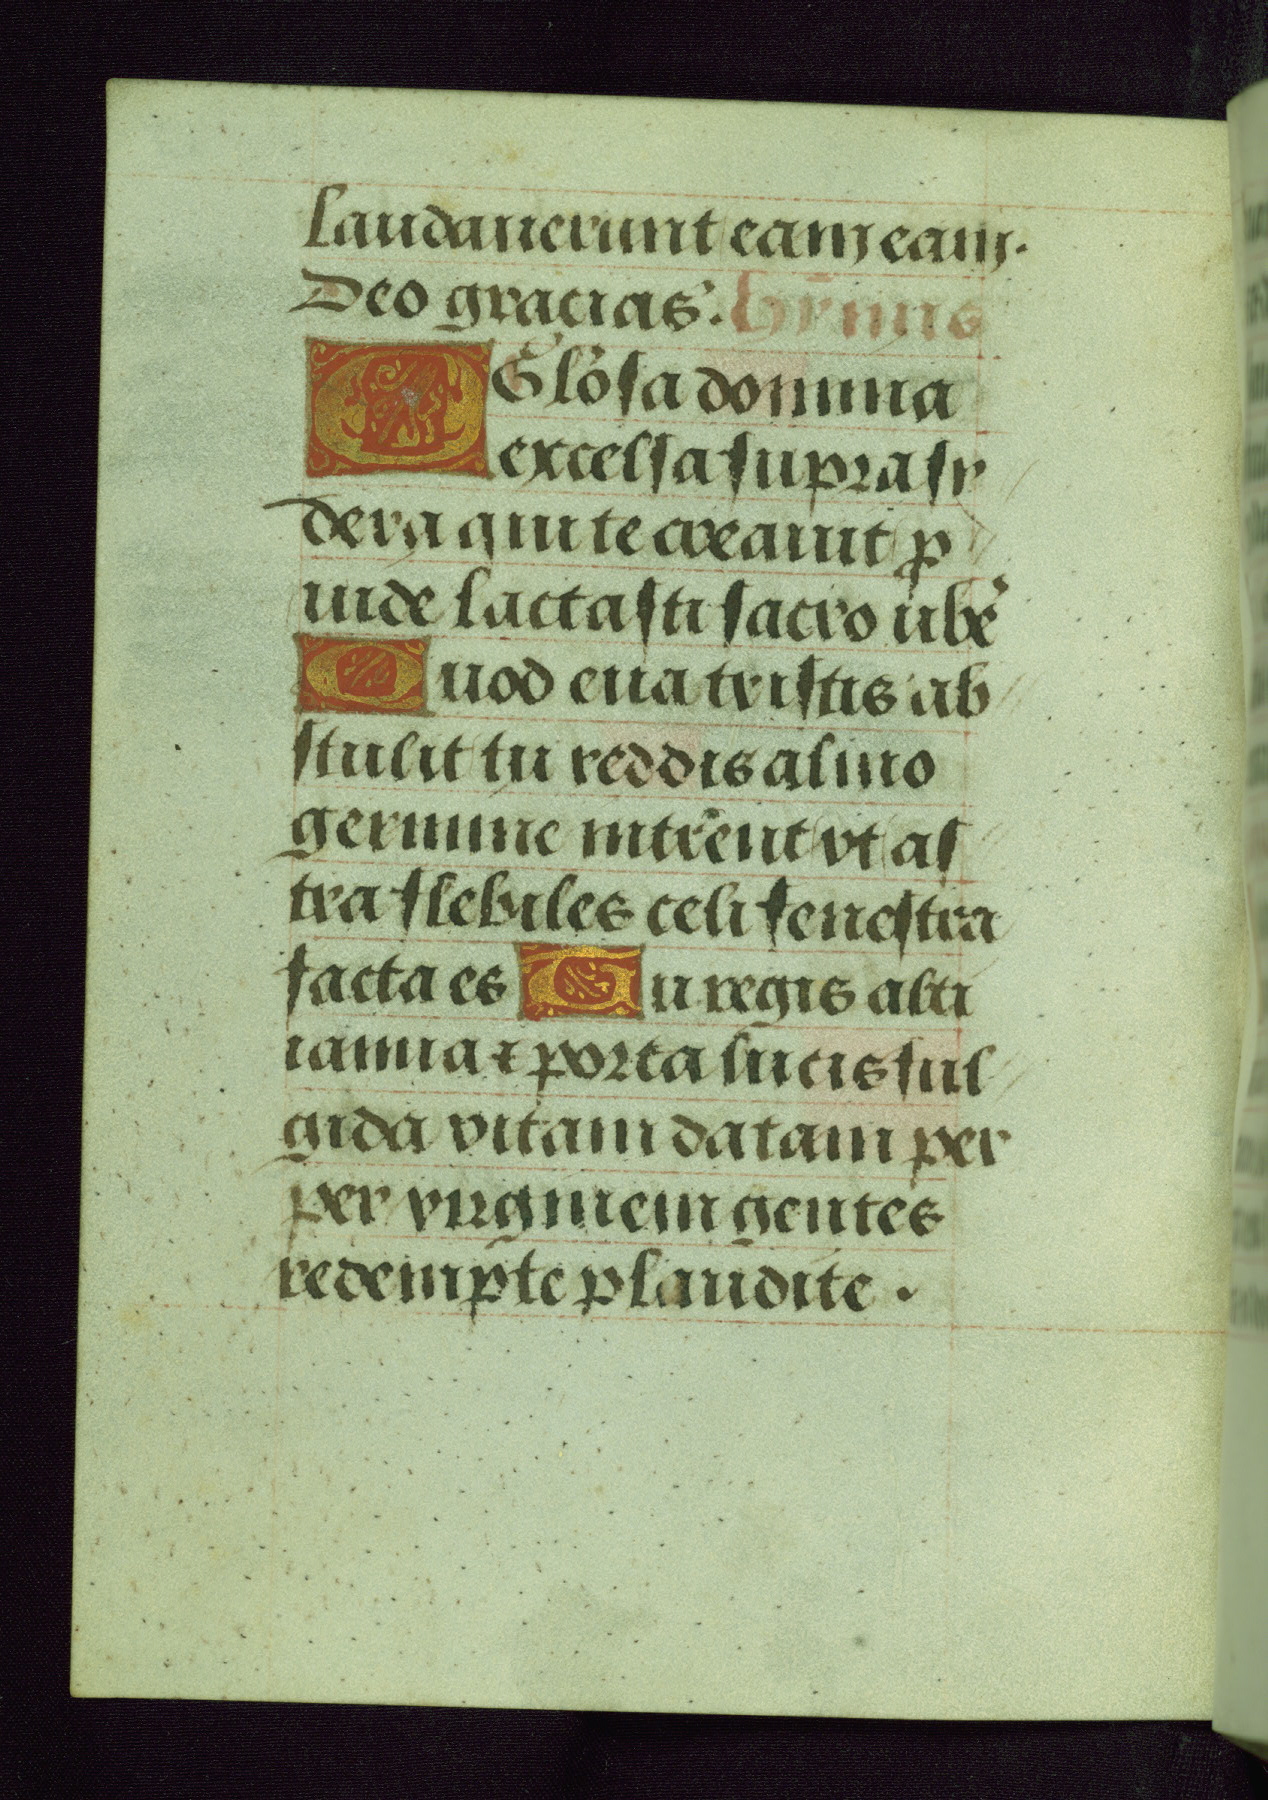 laudauerunt eam eam.
Deo gracias. Hỹmus
O Glõsa domina
excelsa supra sy
dera qui te creauit p
uide lactasti sacro ube
Quod eua tristis ab
stulit tu reddis almo
germine intrent vt as
tra flebiles celi fenestra
facta es Tu regis alti
ianua et porta lucis ful
gida vitam datam per
per virginem gentes
redempte plaudite.